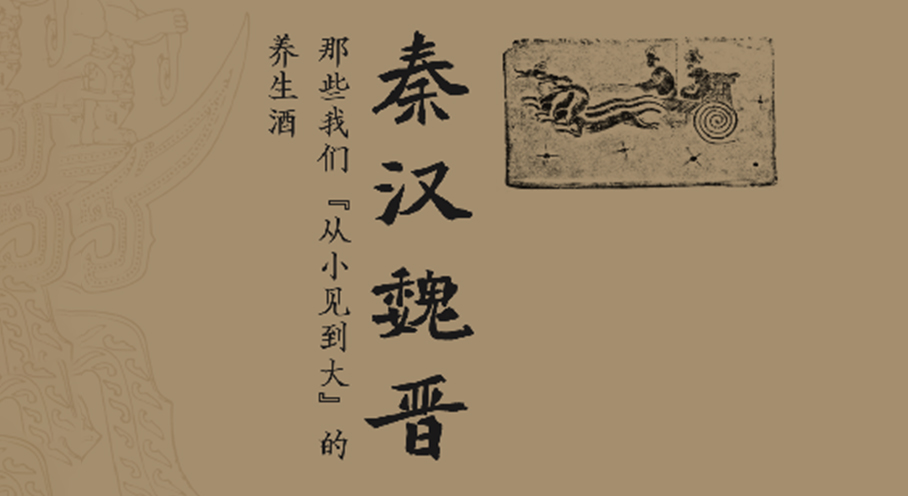 秦汉魏晋
那些我们『从小见到大』的
养生酒